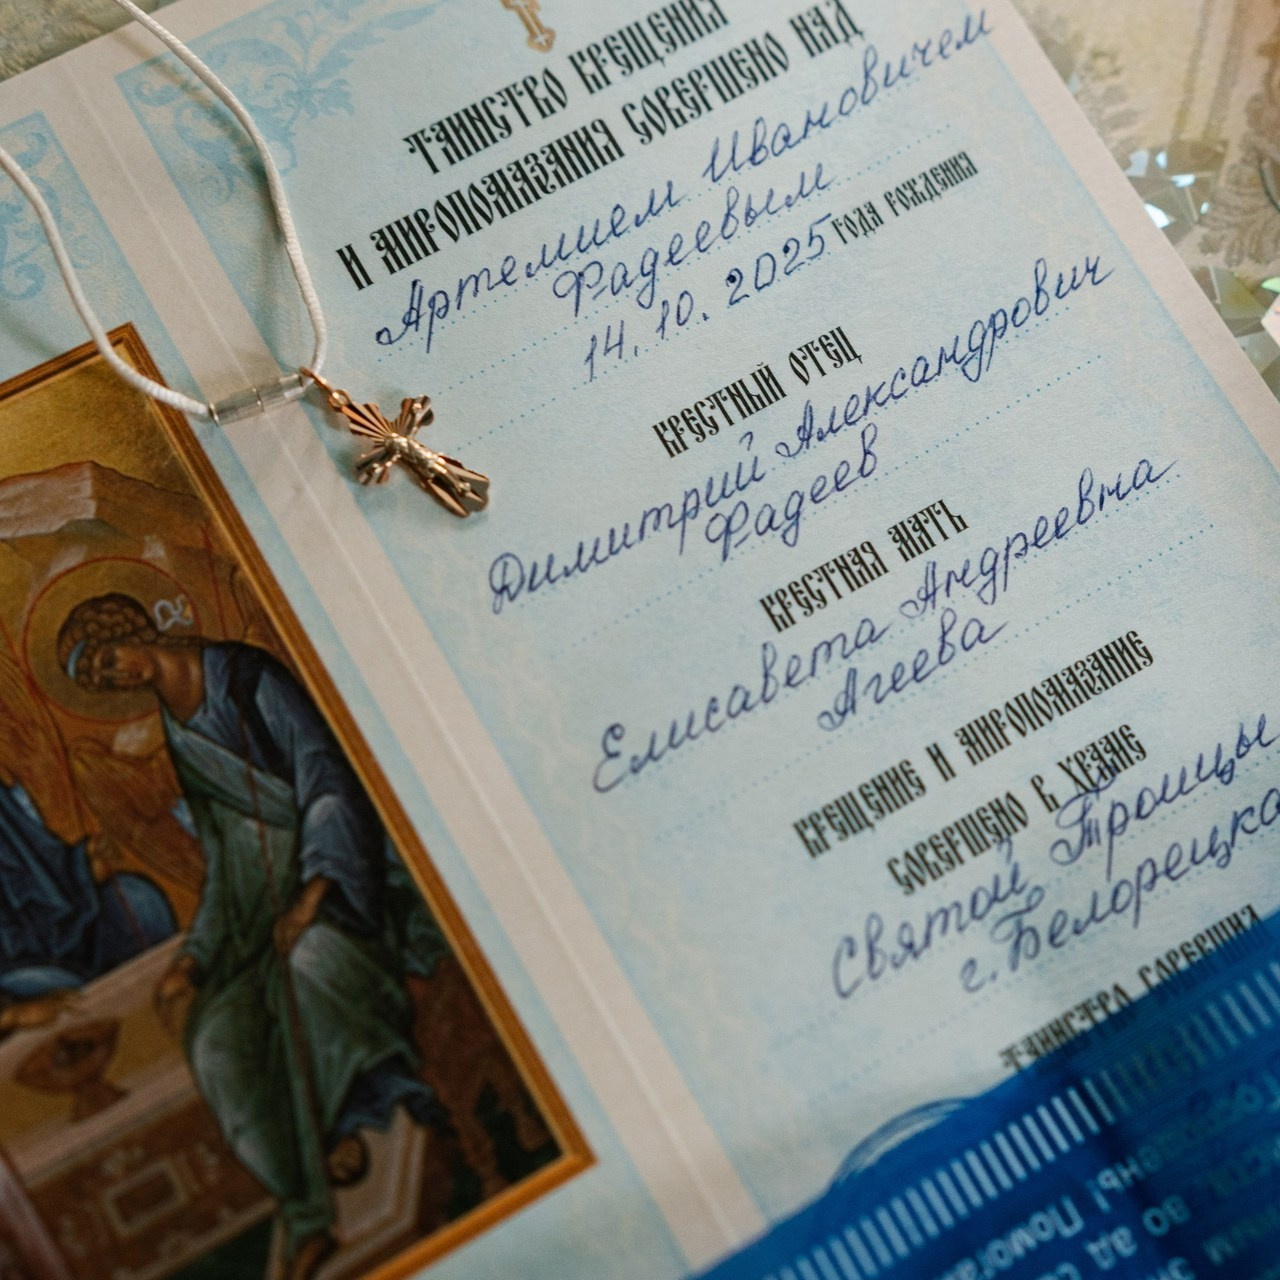 ТАИНСТВО КРЕЩЕНИЯ
И МИРОПОМАЗАНИЯ СОВЕРШЕНО НАД
Артемием Ивановичем
Фадеевым
14.10.2025 ГОДА РОЖДЕНИЯ
КРЕСТНЫЙ ОТЕЦ
Димитрий Александрович
Фадеев
КРЕСТНАЯ МАТЬ
Елисавета Андреевна
Агеева
КРЕЩЕНИЕ И МИРОПОМАЗАНИЕ
СОВЕРШЕНО В ХРАМЕ
Святой Троицы
г. Белорецка
ТАИНСТВО СОВЕРШИЛ